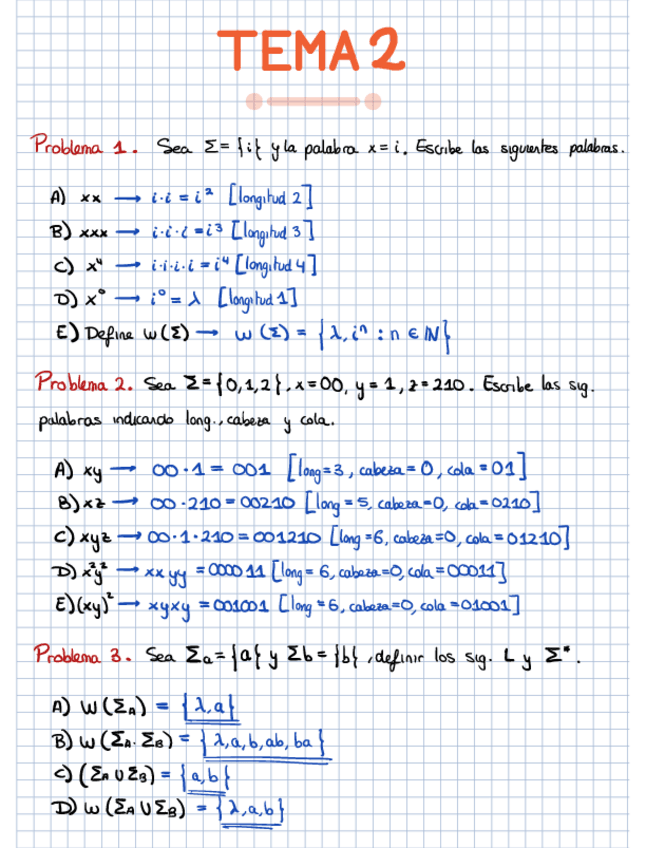 TEMA 2
Problema 1. Sea Σ = {i} y la palabra x = i. Escribe las siguientes palabras.
A) xx → i·i = i² [longitud 2]
B) xxx → i·i·i = i³ [longitud 3]
C) x⁴ → i·i·i·i = i⁴ [longitud 4]
D) x⁰ → i⁰ = λ [longitud 1]
E) Define w(Σ) → w(Σ) = {λ, iⁿ : n ∈ ℕ}
Problema 2. Sea Σ = {0,1,2}, x = 00, y = 1, z = 210. Escribe las sig.
palabras indicando long., cabeza y cola.
A) xy → 00·1 = 001 [long = 3, cabeza = 0, cola = 01]
B) xz → 00·210 = 00210 [long = 5, cabeza = 0, cola = 0210]
C) xyz → 00·1·210 = 001210 [long = 6, cabeza = 0, cola = 01210]
D) x²y² → xx yy = 000011 [long = 6, cabeza = 0, cola = 00011]
E) (xy)² → xyxy = 001001 [long = 6, cabeza = 0, cola = 01001]
Problema 3. Sea Σa = {a} y Σb = {b}, definir los sig. L y Σ*.
A) W(ΣA) = {λ, a}
B) W(ΣA·ΣB) = {λ, a, b, ab, ba}
C) (ΣA ∪ ΣB) = {a, b}
D) W(ΣA ∪ ΣB) = {λ, a, b}